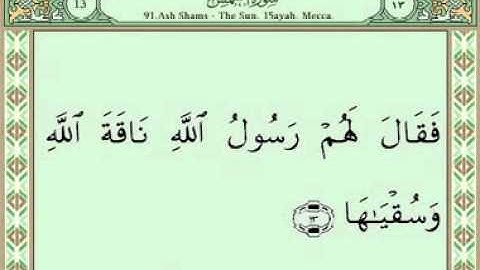 13 سورة الشمس ١٣
91.Ash Shams - The Sun. 15ayah. Mecca.
فَقَالَ لَهُمْ رَسُولُ ٱللَّهِ نَاقَةَ ٱللَّهِ
وَسُقْيَـٰهَا ١٣